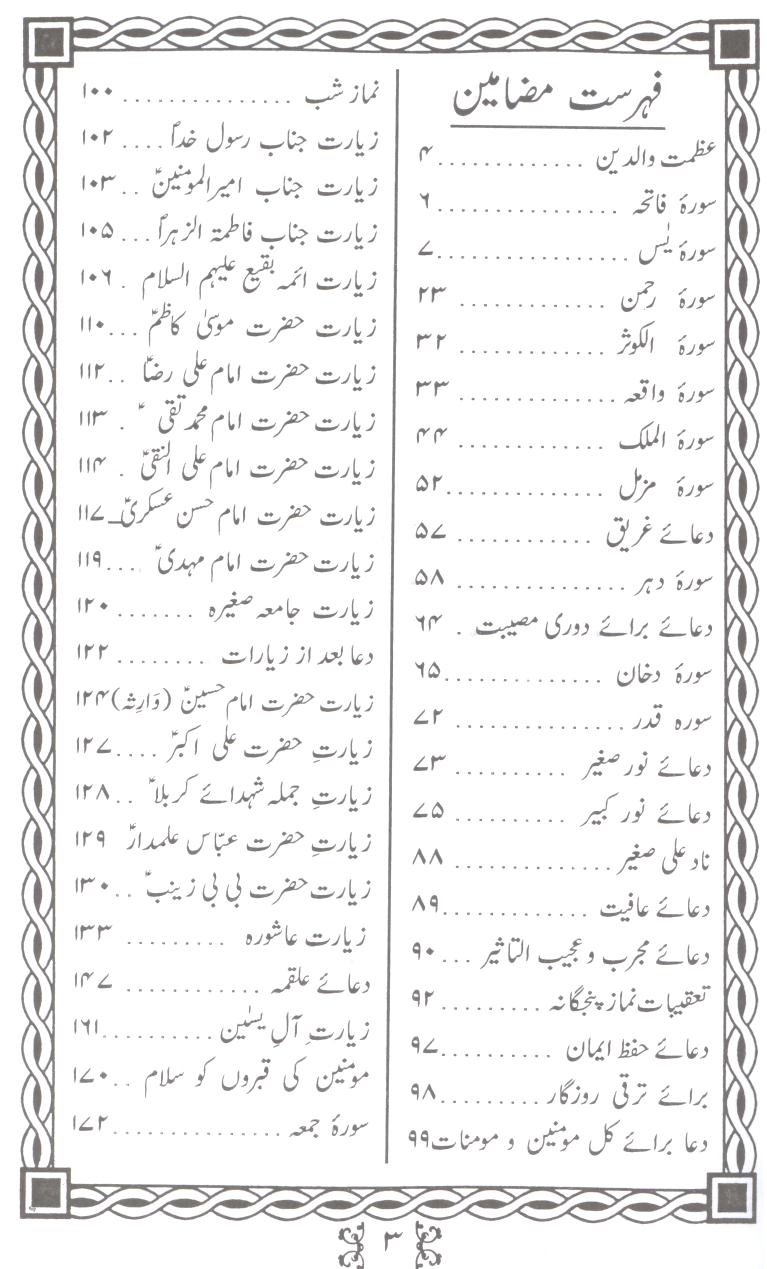 فہرست مضامین
عظمت والدین ............. ۴
سورۂ فاتحہ ................ ۶
سورۂ یٰس .................. ۷
سورۂ رحمن .............. ۲۳
سورۂ الکوثر .............. ۳۲
سورۂ واقعہ ............... ۳۳
سورۂ الملک ............. ۴۴
سورۂ مزمل .............. ۵۲
دعائے غریق ............ ۵۷
سورۂ دہر ................ ۵۸
دعائے برائے دوری مصیبت . ۶۴
سورۂ دخان .............. ۶۵
سورہ قدر ................ ۷۲
دعائے نور صغیر .......... ۷۳
دعائے نور کبیر .......... ۷۵
ناد علی صغیر .............. ۸۸
دعائے عافیت ............. ۸۹
دعائے مجرب و عجیب التاثیر ... ۹۰
تعقیبات نماز پنجگانہ ......... ۹۲
دعائے حفظ ایمان .......... ۹۷
برائے ترقی روزگار .......... ۹۸
دعا برائے کل مومنین و مومنات ۹۹
نماز شب ............... ۱۰۰
زیارت جناب رسول خداؐ .... ۱۰۲
زیارت جناب امیرالمومنینؑ .. ۱۰۳
زیارت جناب فاطمۃ الزہراؑ ... ۱۰۵
زیارت ائمہ بقیع علیہم السلام . ۱۰۶
زیارت حضرت موسیٰ کاظمؑ ... ۱۱۰
زیارت حضرت امام علی رضاؑ .. ۱۱۲
زیارت حضرت امام محمد تقی ؑ . ۱۱۳
زیارت حضرت امام علی النقیؑ . ۱۱۴
زیارت حضرت امام حسن عسکریؑ_ ۱۱۷
زیارت حضرت امام مہدیؑ .... ۱۱۹
زیارت جامعہ صغیرہ ....... ۱۲۰
دعا بعد از زیارات ........ ۱۲۲
زیارت حضرت امام حسینؑ (وَارِثہ) ۱۲۴
زیارتِ حضرت علی اکبرؑ .... ۱۲۷
زیارتِ جملہ شہدائے کربلاؑ .. ۱۲۸
زیارتِ حضرت عبّاس علمدارؑ ۱۲۹
زیارت حضرت بی بی زینبؑ .. ۱۳۰
زیارت عاشورہ ......... ۱۳۳
دعائے علقمہ ............ ۱۴۷
زیارتِ آلِ یسٰین .......... ۱۶۱
مومنین کی قبروں کو سلام .. ۱۷۰
سورۂ جمعہ ............... ۱۷۲
۳